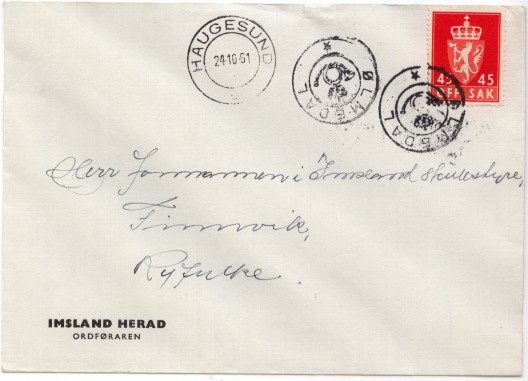 HAUGESUND
24·10·61
ØLMEDAL
ØLMEDAL
45 45
OFF. SAK
Herr formannen i Imsland skulestyre,
Finnvik,
Ryfylke.
IMSLAND HERAD
ORDFØRAREN